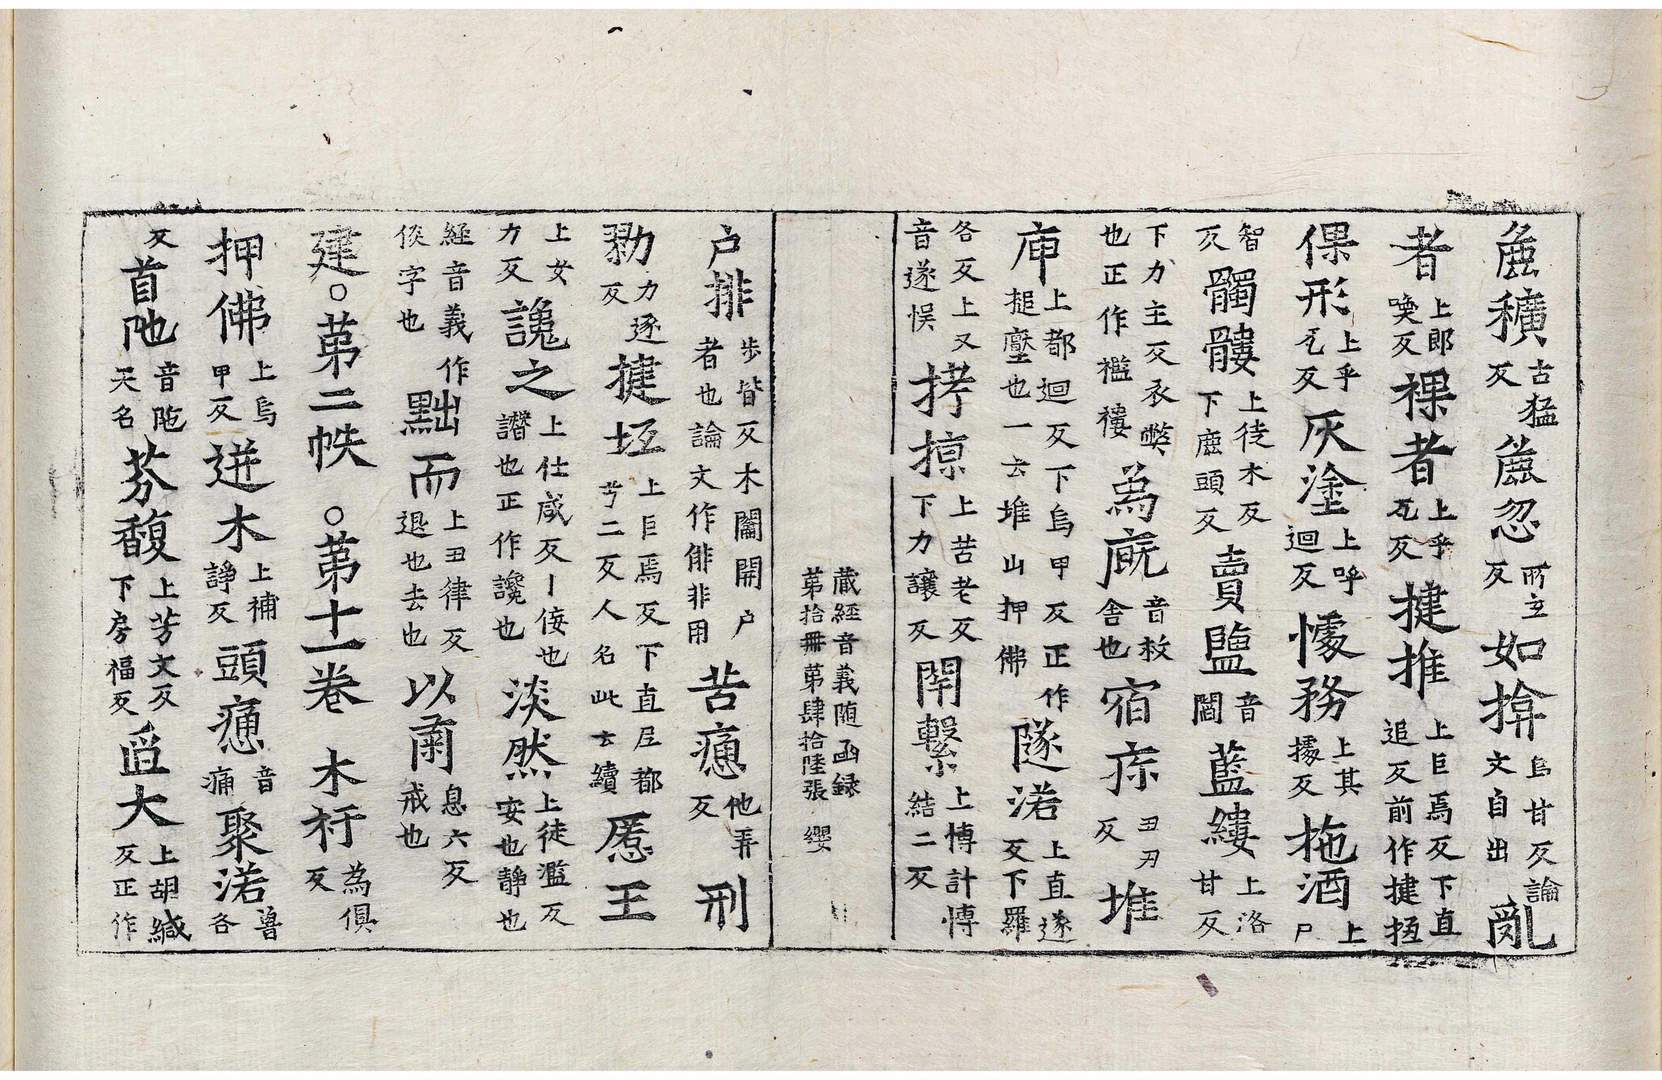 麁穬古猛反麁忽所立反如揜烏甘反論文自出亂
者上郎喚反裸者上乎瓦反揵推上巨焉反下直追反前作揵㧊
倮形上乎瓦反灰塗上呼迴反懅務上其據反拖酒上尸
智反髑髏上徒木反下廔頭反賣鹽音閻藍縷上洛甘反
下力主反衣弊也正作襤褸為廐音救舍也宿疢丑刃反堆
庘上都迴反下烏甲反正作㨃壓也一云堆山押佛隧渃上直遂反下羅
各反上又音遂悮拷掠上苦老反下力讓反閈繫上愽計愽結二反
藏經音義随函録
第拾冊第肆拾陸張 纓
户排步皆反木闔開户者也論文作俳非用苦㥁他弄反刑
勠力逐反揵坘上巨焉反下直尼都丂二反人名此云續慝王
上女力反讒之上仕咸反丨佞也譖也正作讒也淡然上徒濫反安也靜也
經音義作倐字也黜而上丑律反退也去也以肅息六反戒也
建○第二帙 ○第十一卷 木杅為俱反
押佛上烏甲反迸木上補諍反頭㥁音痛聚渃音各
反首阤音陁天名芬馥上芳文反下房福反㿝大上胡緘反正作